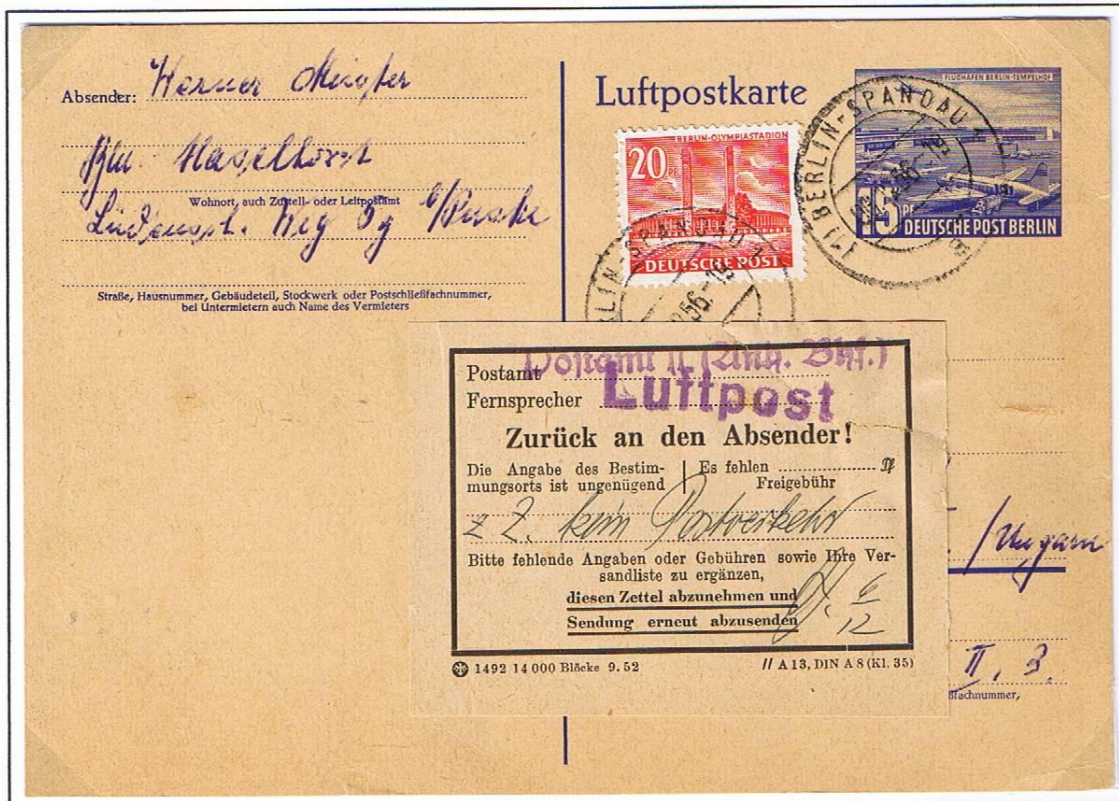 Absender: Werner
Bln Haselhorst
Wohnort, auch Zustell- oder Leitpostamt
Weg
Straße, Hausnummer, Gebäudeteil, Stockwerk oder Postschließfachnummer,
bei Untermietern auch Name des Vermieters
Luftpostkarte
FLUGHAFEN BERLIN-TEMPELHOF
15 PF
DEUTSCHE POST BERLIN
(1) BERLIN-SPANDAU 1
BERLIN-OLYMPIASTADION
20 PF
DEUTSCHE POST
56.-19
Postamt
Postamt 11 (Anh. Bhf.)
Luftpost
Fernsprecher
Zurück an den Absender!
Die Angabe des Bestim-
mungsorts ist ungenügend
Es fehlen
Freigebühr
z Z. kein Postverkehr
Bitte fehlende Angaben oder Gebühren sowie Ihre Ver-
sandliste zu ergänzen,
diesen Zettel abzunehmen und
Sendung erneut abzusenden
6
12
1492 14 000 Blöcke 9. 52
// A 13, DIN A 8 (Kl. 35)
/Ungarn
II. 3.